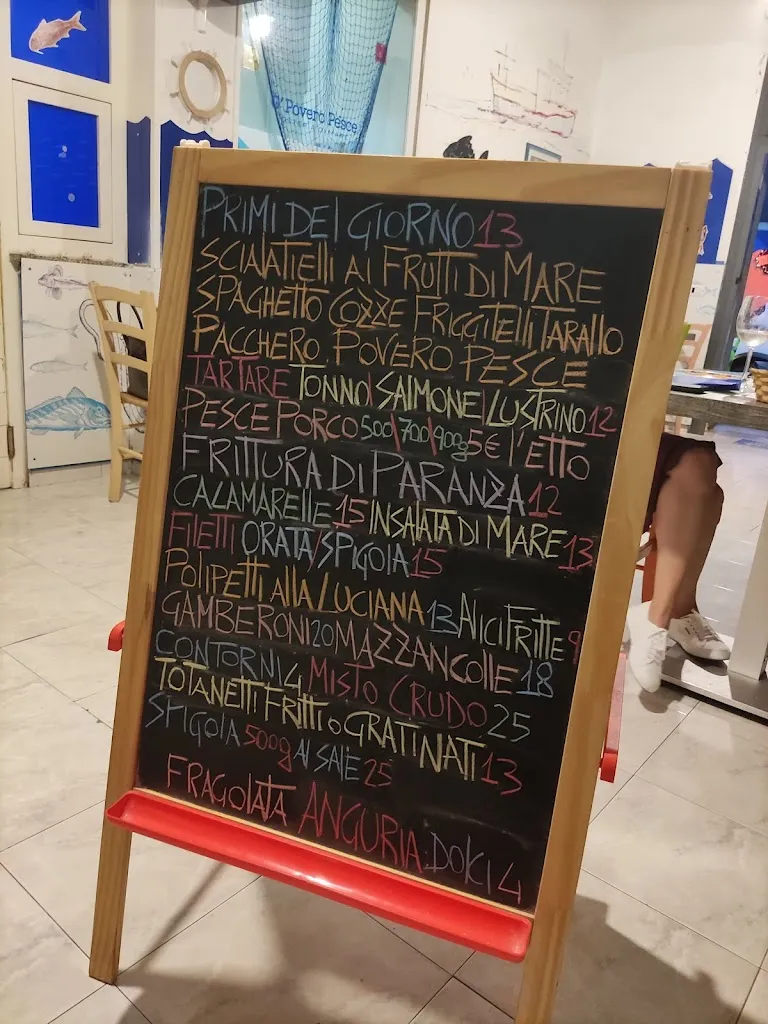 O' Povero Pesce
PRIMI DEL GIORNO 13
SCIALATIELLI AI FRUTTI DI MARE
SPAGHETTO COZZE FRIGGITELLI TARALLO
PACCHERO POVERO PESCE
TARTARE TONNO/SALMONE/LUSTRINO 12
PESCE PORCO 500/700/900g 5€ l'ETTO
FRITTURA DI PARANZA 12
CALAMARELLE 15 INSALATA DI MARE 13
FILETTI ORATA/SPIGOLA 15
POLIPETTI ALLA LUCIANA 13 ALICI FRITTE 9
GAMBERONI 20 MAZZANCOLLE 18
CONTORNI 4 MISTO CRUDO 25
TOTANETTI FRITTI O GRATINATI 13
SPIGOLA 500g AL SALE 25
FRAGOLATA ANGURIA DOLCI 4